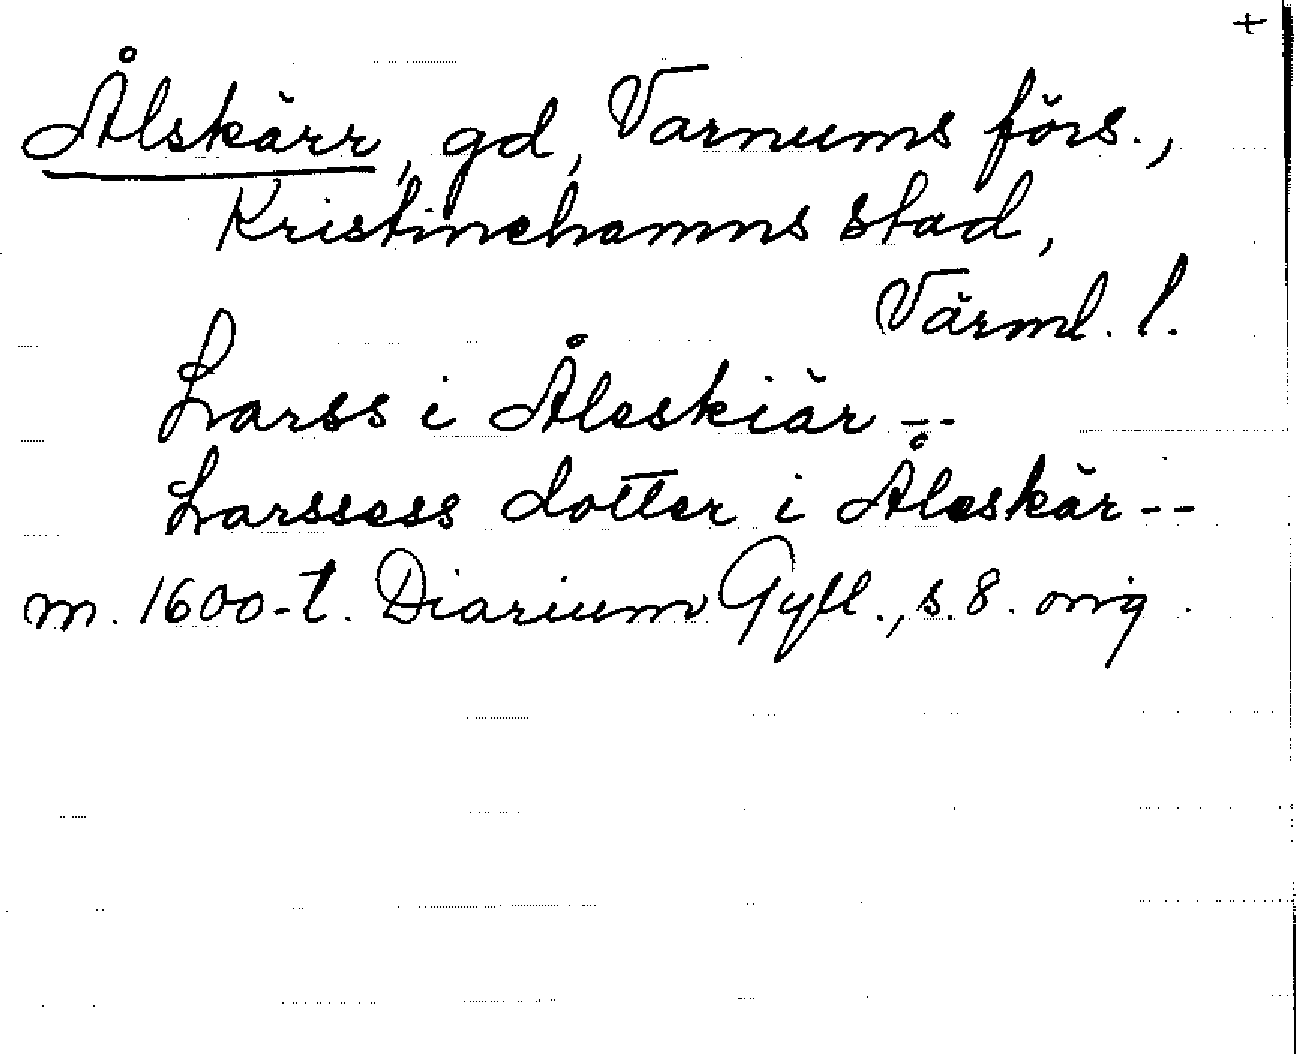 +
Ålskärr, gd, Varnums förs.,
Kristinehamns stad,
Värml. l.
Larss i Åleskiär --
Larssess dotter i Åleskär --
m. 1600-t. Diarium Gyll., s. 8. orig.